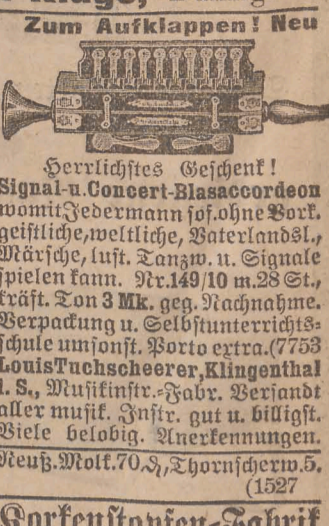 Zum Aufklappen! Neu
Herrlichstes Geschenk!
Signal-u.Concert-Blasaccordeon
womit Jedermann sof. ohne Vork.
geistliche, weltliche, Vaterlandsl.,
Märsche, lust. Tanzw. u. Signale
spielen kann. Nr. 149/10 m. 28 St.,
kräft. Ton 3 Mk. geg. Nachnahme.
Verpackung u. Selbstunterrichts-
schule umsonst. Porto extra. (7753
Louis Tuchscheerer, Klingenthal
i. S., Musikinstr.-Fabr. Versandt
aller musik. Instr. gut u. billigst.
Viele belobig. Anerkennungen.
Neuß. Molk. 70 ₰, Thornscherw. 5.
(1527
Korkenstopfen-Fabrik